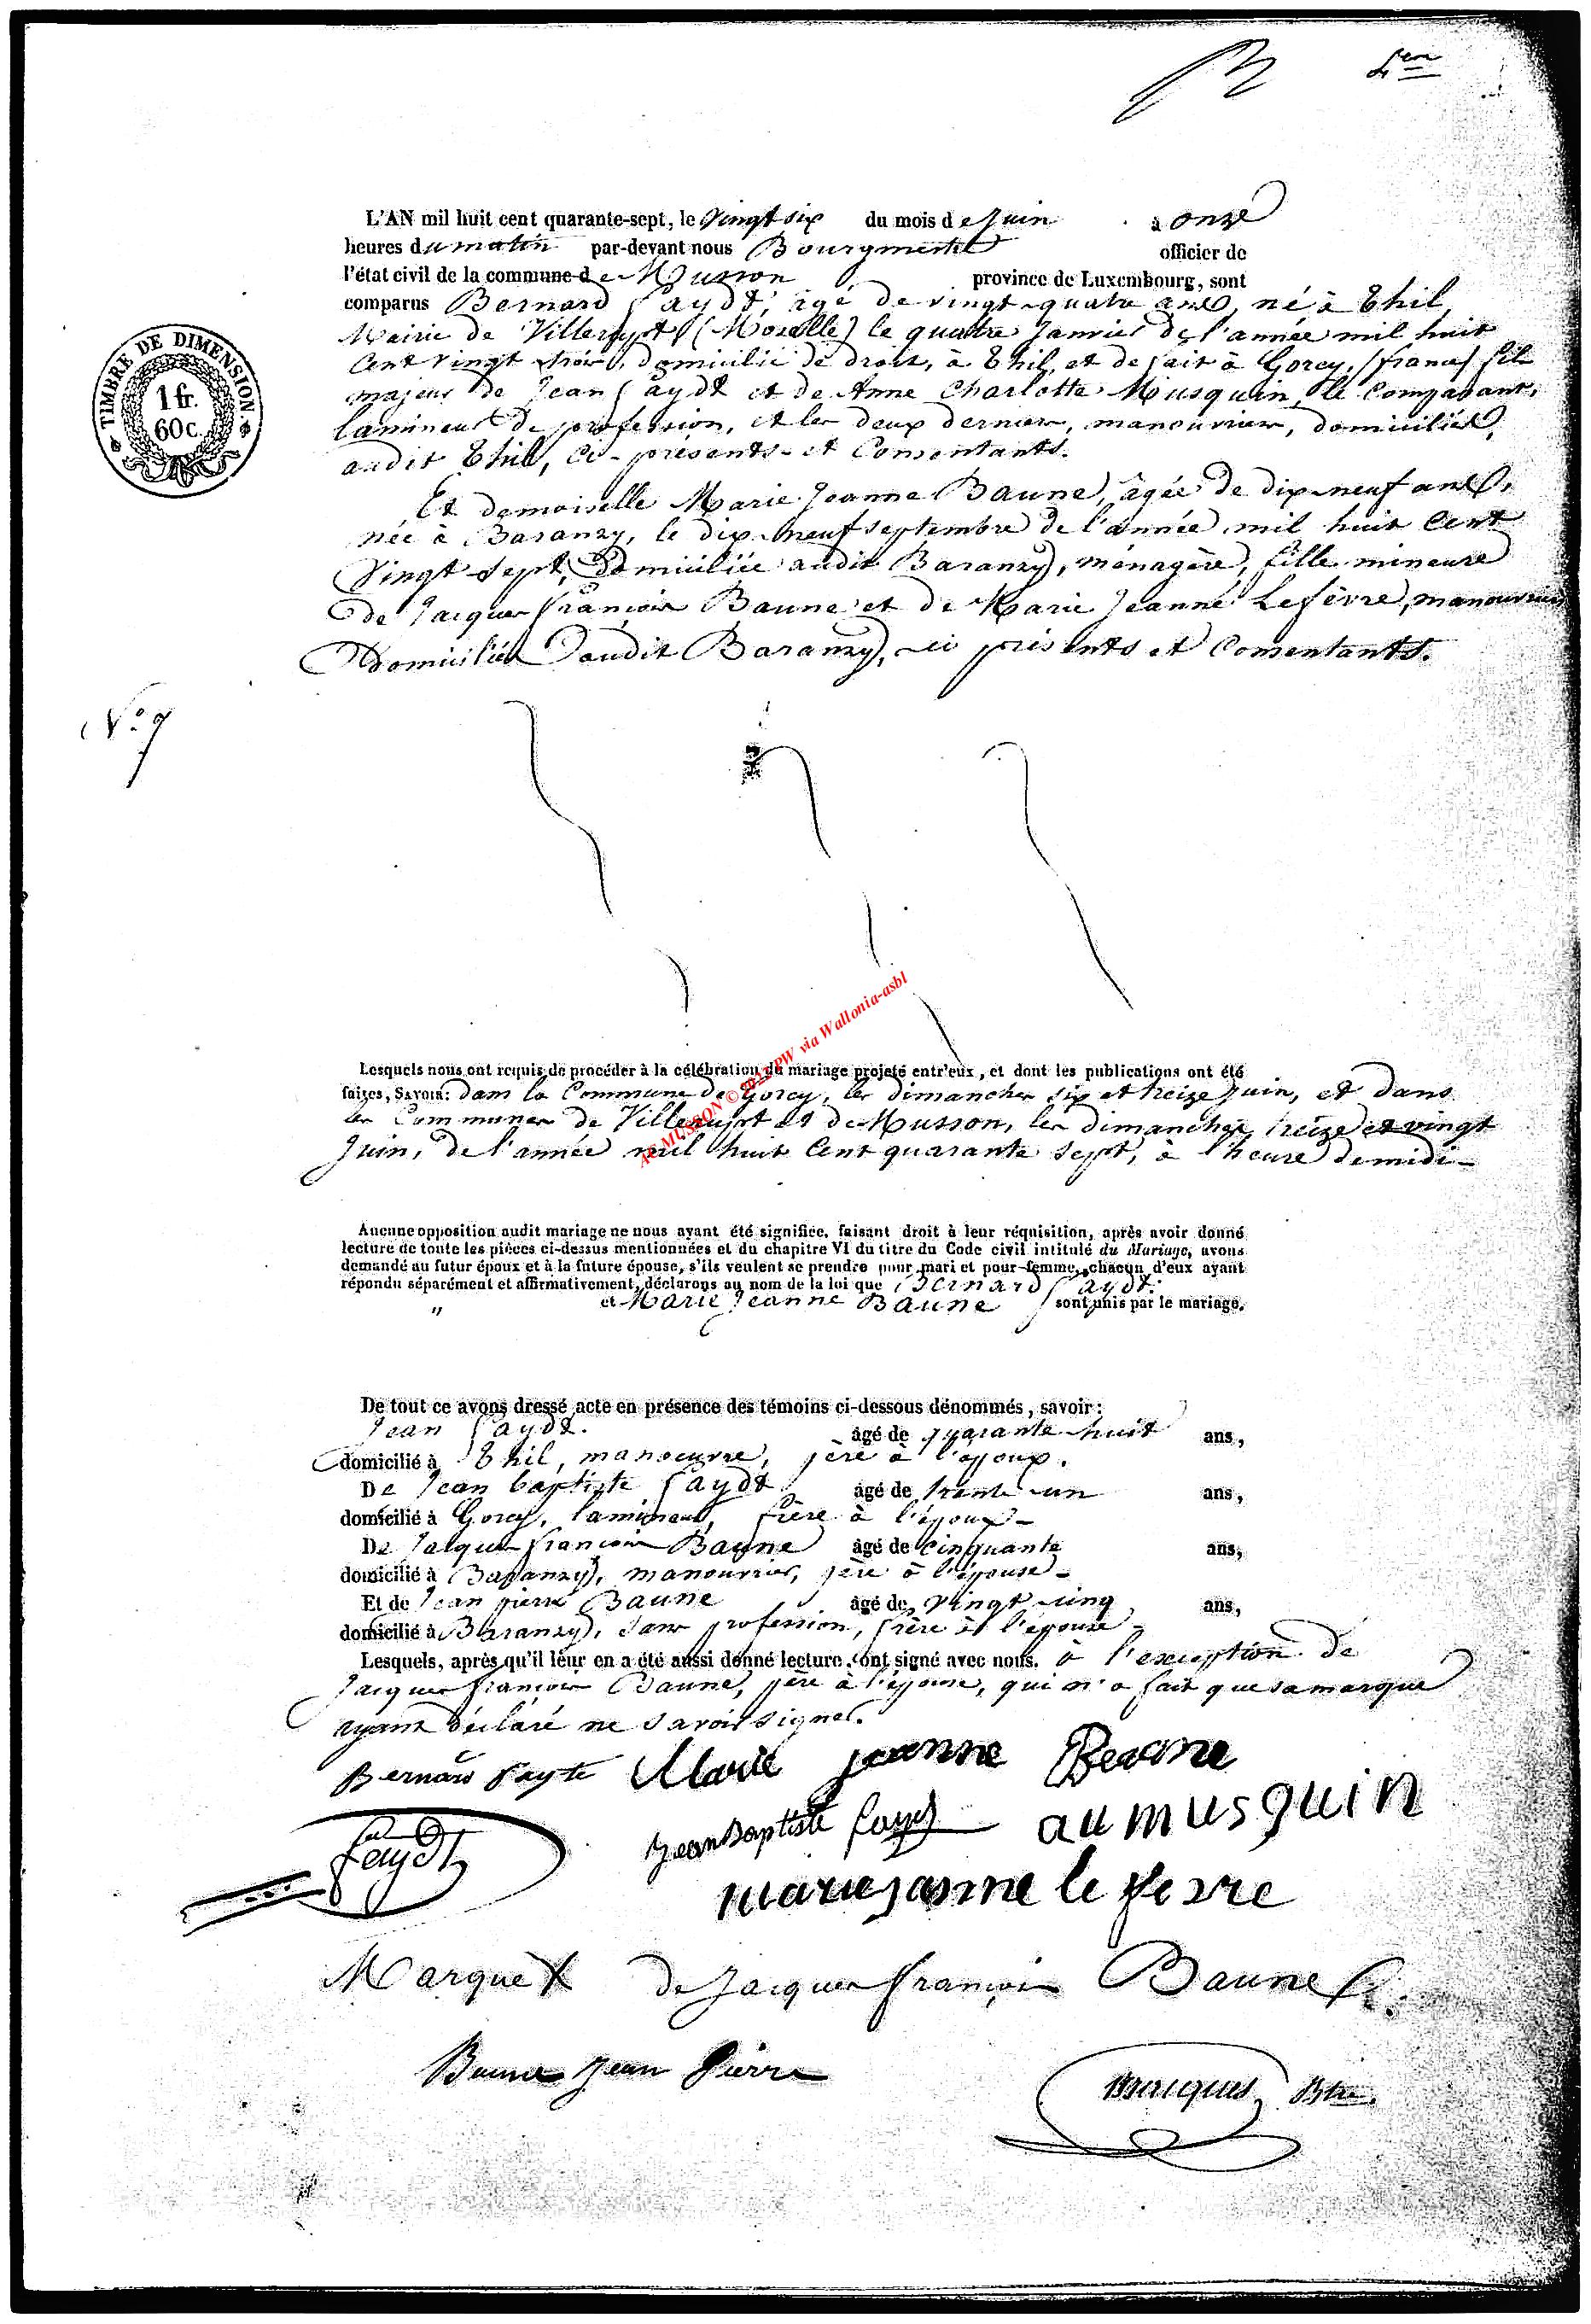 4eme
TIMBRE DE DIMENSION.
1 fr.
60 c.
L'AN mil huit cent quarante-sept, le Vingt six du mois de Juin à onze
heures du matin par-devant nous Bourgmestre officier de
l'état civil de la commune de Musson province de Luxembourg, sont
comparus Bernard Faydt, âgé de vingt-quatre ans, né à Thil,
Mairie de Villerupt (Moselle) le quatre Janvier de l'année mil huit
Cent vingt trois, domicilié de droit, à Thil, et de fait à Gorcy, (france) fils
majeur de Jean Faydt et de Anne Charlotte Musquin, le Comparant,
lamineur de profession, et les deux derniers, manouvriers, domiciliés,
audit Thil, ci-présents et Consentants.
Et demoiselle Marie Jeanne Baune, âgée de dix-neuf ans,
née à Baranzy, le dix-neuf septembre de l'année mil huit Cent
Vingt-sept, domiciliée audit Baranzy, ménagère, fille mineure
de Jacques François Baune et de Marie Jeanne Lefèvre, manouvriers
domiciliés audit Baranzy, ci présents et Consentants.
N° 7
Lesquels nous ont requis de procéder à la célébration du mariage projeté entr'eux, et dont les publications ont été
faites, SAVOIR: dans la Commune de Gorcy, les dimanches six et treize Juin, et dans
les Communes de Villerupt et de Musson, les dimanches treize et vingt
Juin, de l'année mil huit Cent quarante sept, à l'heure de midi-
AC MUSSON © via Wallonia-asbl
Aucune opposition audit mariage ne nous ayant été signifiée, faisant droit à leur réquisition, après avoir donné
lecture de toute les pièces ci-dessus mentionnées et du chapitre VI du titre du Code civil intitulé du Mariage, avons
demandé au futur époux et à la future épouse, s'ils veulent se prendre pour mari et pour femme, chacun d'eux ayant
répondu séparément et affirmativement, déclarons au nom de la loi que Bernard Faydt.
" et Marie Jeanne Baune sont unis par le mariage.
De tout ce avons dressé acte en présence des témoins ci-dessous dénommés, savoir:
Jean Faydt. âgé de quarante huit ans,
domicilié à Thil, manoeuvre, père à l'époux.
De Jean baptiste Faydt âgé de trente-un ans,
domicilié à Gorcy, lamineur, frère à l'époux-
De Jacques françois Baune âgé de cinquante ans,
domicilié à Baranzy, manouvrier, père à l'épouse-
Et de Jean pierre Baune âgé de vingt-cinq ans,
domicilié à Baranzy, sans profession, frère à l'épouse-
Lesquels, après qu'il leur en a été aussi donné lecture, ont signé avec nous. à l'exception de
Jacques françois Baune, père à l'épouse, qui n'a fait que sa marque
ayant déclaré ne savoir signer.
Bernard Fayte Marie jeanne Beaune
faydt
Jean Baptiste Fayd au musquin
marie janne le fevre
Marque X de Jacques françois Baune
Baune Jean Pierre